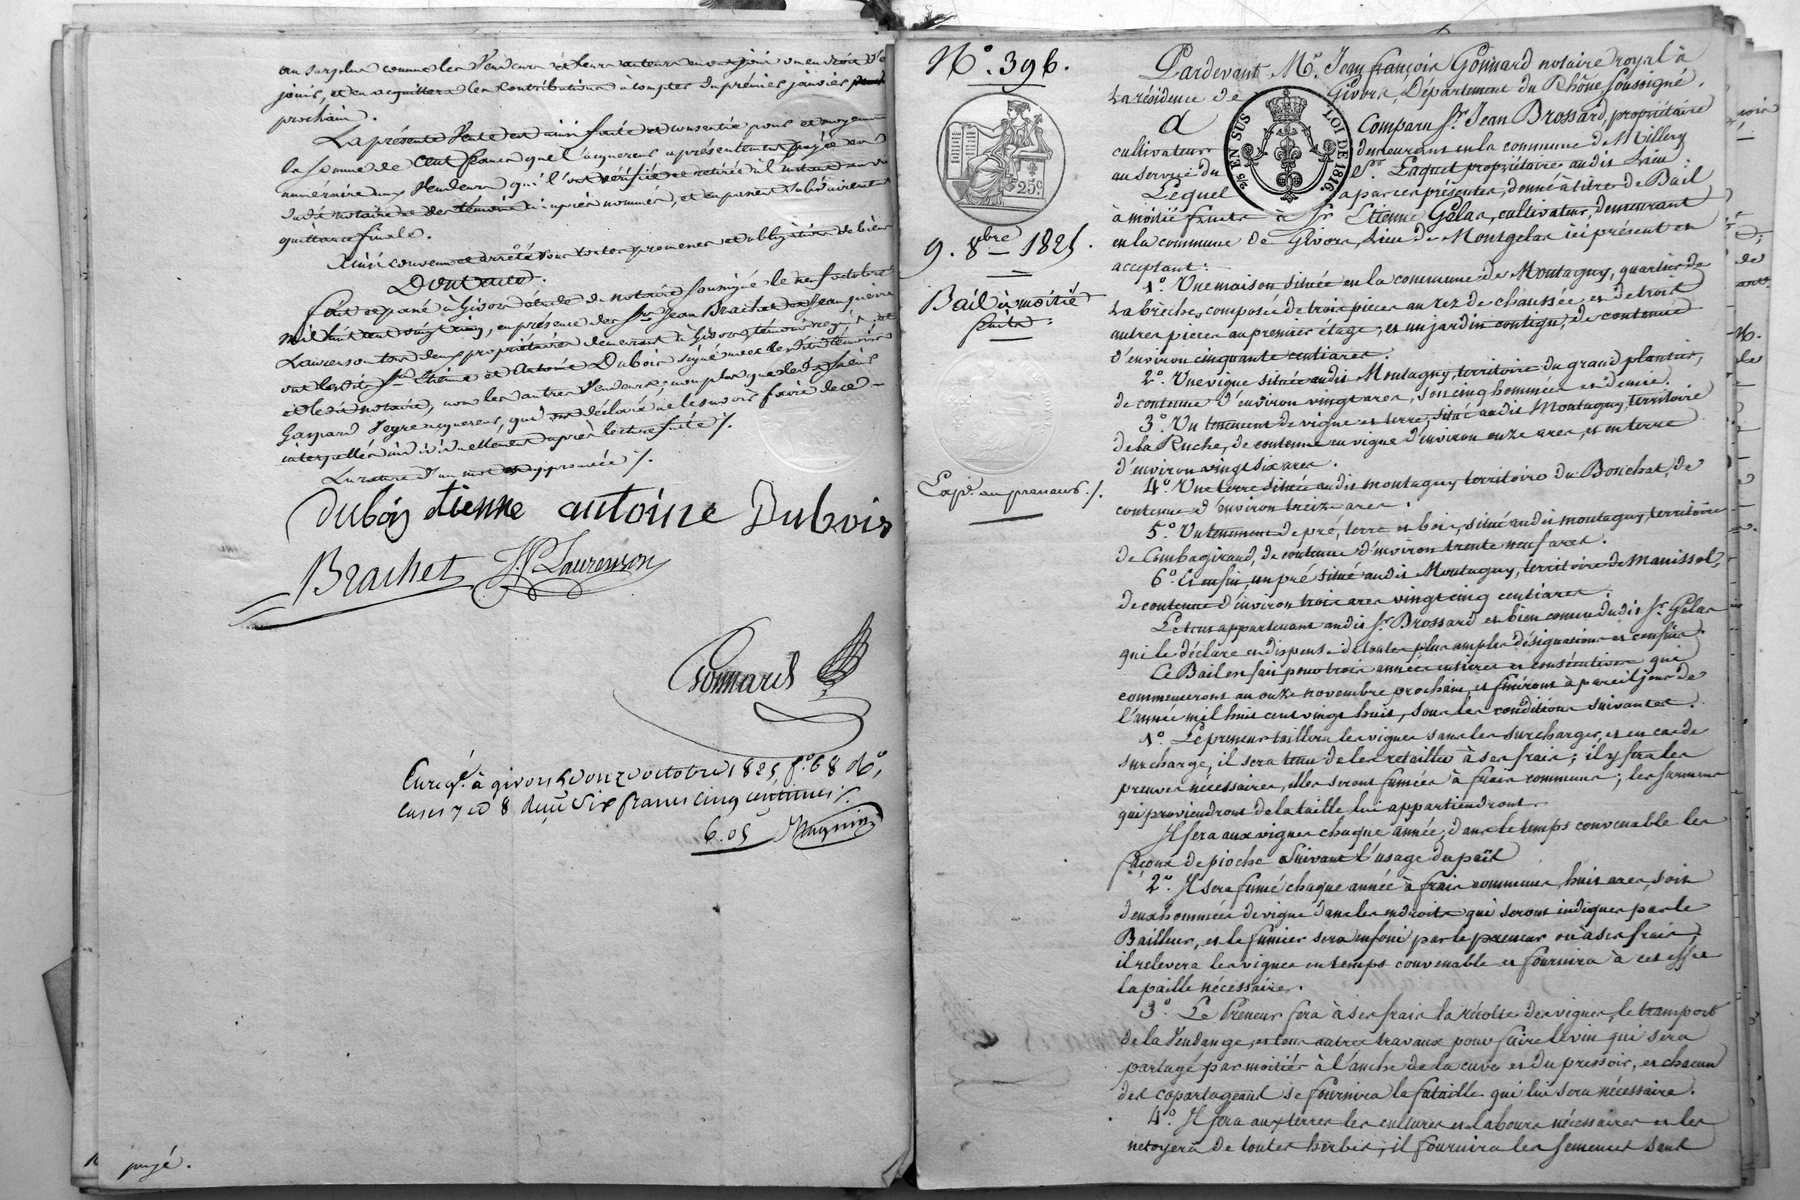 au surplus comme les Vendeurs et leurs auteurs en ont joui ou eu droit de
jouir, et en acquittera les contributions à compter du premier janvier
prochain.
La présente Vente est ainsi faite et consentie pour et moyennant
la somme de cent francs que l'acquereur a présentement payée en
numéraire aux Vendeurs qui l'ont vérifiée et retirée à l'instant au vu
dudit notaire et des témoins ci-après nommés, et en passent subsidiairement
quittance finale.
Ainsi convenu et arrêté sous toutes promesses et obligations de biens
Dont acte.
Fait et passé à Givors étude du notaire soussigné le neuf octobre
mil huit cent vingt cinq, en présence des Srs Jean Brachet et Jean pierre
Laurenson tous deux propriétaires demeurant à Givors, témoins requis, et
ont lesdits Srs Etienne et Antoine Dubois signé avec lesdits témoins
et ledit notaire, non les autres Vendeurs, non plus que led. Sieur
Gaspard Peyre acquereur, qui ont déclaré ne le savoir faire de ce
interpellés individuellement après lecture faite /.
La rature d'un mot est approuvée /.
dubois etienne antoine Dubois
Brachet JP Laurenson
Gonnard
Enregé. à givors le onze octobre 1825, fo. 68 Ro.
cases 7 et 8 reçu six francs cinq centimes /.
6.05 Magnin
payé.
No. 396.
25c.
9. 8bre 1825.
Bail à moitié
fruits
Expén. au preneur /.
Pardevant Me. Jean françois Gonnard notaire royal à
la résidence de Givors, Département du Rhône soussigné.
2/5 EN SUS LOI DE 1816.
A Comparu Sr. Jean Brossard, propriétaire
cultivateur demeurant en la commune de Millery
au service du Sr. Laquet propriétaire audit lieu
Lequel a par ces présentes, donné à titre de Bail
à moitié fruits à Sr. Etienne Gélas, cultivateur, demeurant
en la commune de Givors, Lieu de Montgelas ici présent et
acceptant:
1o. Une maison située en la commune de Montagny, quartier de
La brèche, composée de trois pièces au rez de chaussée, et de trois
autres pièces au premier étage, et un jardin contigu, de contenue
d'environ cinquante centiares.
2o. Une vigne située audit Montagny, territoire du grand plantier,
de contenue d'environ vingt ares, soit cinq hommées et demie.
3o. Un tenement de vigne et terre, situé audit Montagny, territoire
de la Ruche, de contenue en vigne d'environ onze ares, et en terre
d'environ vingt six ares.
4o. Une terre située audit montagny territoire du Bouchat, de
contenue d'environ treize ares.
5o. Un tenement de pré, terre et bois, situé audit montagny, territoire
de Combagiraud, de contenue d'environ trente neuf ares.
6o. Et enfin, un pré situé audit Montagny, territoire de Manissol,
de contenue d'environ trois ares vingt cinq centiares.
Le tout appartenant audit Sr. Brossard et bien connu dudit Sr. Gélas
qui le déclare et dispense de toutes plus amples désignations et confins.
Ce Bail est fait pour trois années entières et consécutives qui
commenceront au onze novembre prochain, et finiront à pareil jour de
l'année mil huit cent vingt huit, sous les conditions suivantes.
1o. Le preneur taillera les vignes sans les surcharger, et en cas de
surcharge, il sera tenu de les retailler à ses frais; il y fera les
preuves nécessaires, elles seront fumées à frais communs; les sarments
qui proviendront de la taille lui appartiendront.
Il fera aux vignes chaque année, dans le temps convenable les
façons de pioche suivant l'usage du païs
2o. Il sera fumé chaque année à frais communs, huit ares, soit
deux hommées de vigne dans les endroits qui seront indiqués par le
Bailleur, et le fumier sera enfoui par le preneur ou à ses frais,
il relevera les vignes en temps convenable et fournira à cet effet
la paille nécessaire.
3o. Le Preneur fera à ses frais la récolte des vignes, le transport
de la Vendange, et tous autres travaux pour faire le vin qui sera
partagé par moitiés à l'anche de la cuve et du pressoir, et chacun
des copartageant se fournira la futaille qui lui sera nécessaire.
4o. Il fera aux terres les cultures et labours nécessaires et les
netoyera de toutes herbes, il fournira les semences sans